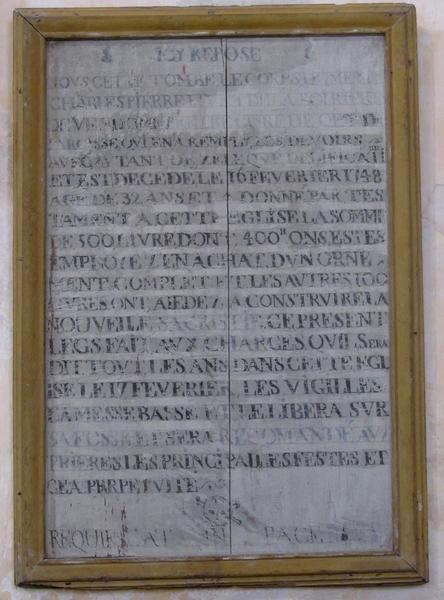 ICY REPOSE
SOVS CETTE TOMBE LE CORPS DE MER
CHARLES PIERRE
DE VENDOME
PAROISSE QVI EN A REMPLY LES DEVOIRS
AVEC AVTANT DE ZELE QVE DEDIFICATI
ET EST DECEDE LE 16 FEVERIER 1748
AGE DE 32 ANS ET A DONNÉ PAR TES
TAMENT A CETTE EGLISE LA SOMME
DE 500 LIVRE DONT 400ᴴ ONS ESTES
EMPLOYEZ EN ACHAT DVN ORNE
MENT COMPLET ET LES AVTRES 100
LIVRES ONT AIEDEZ A CONSTRVIRE LA
NOUVELLE SACRISTIE CE PRESENT
LEGS FAIT AVX CHARGES QVIL SERA
DIT TOVT LES ANS DANS CETTE EGL
ISE LE 17 FEVERIER LES VIGILLES
LA MESSE BASSE ET LE LIBERA SVR
SA FOSSE ET SERA RECOMANDÉ AVX
PRIERES LES PRINCIPALLES FESTES ET
CE A PERPETVITE
REQUIESCAT IN PACE